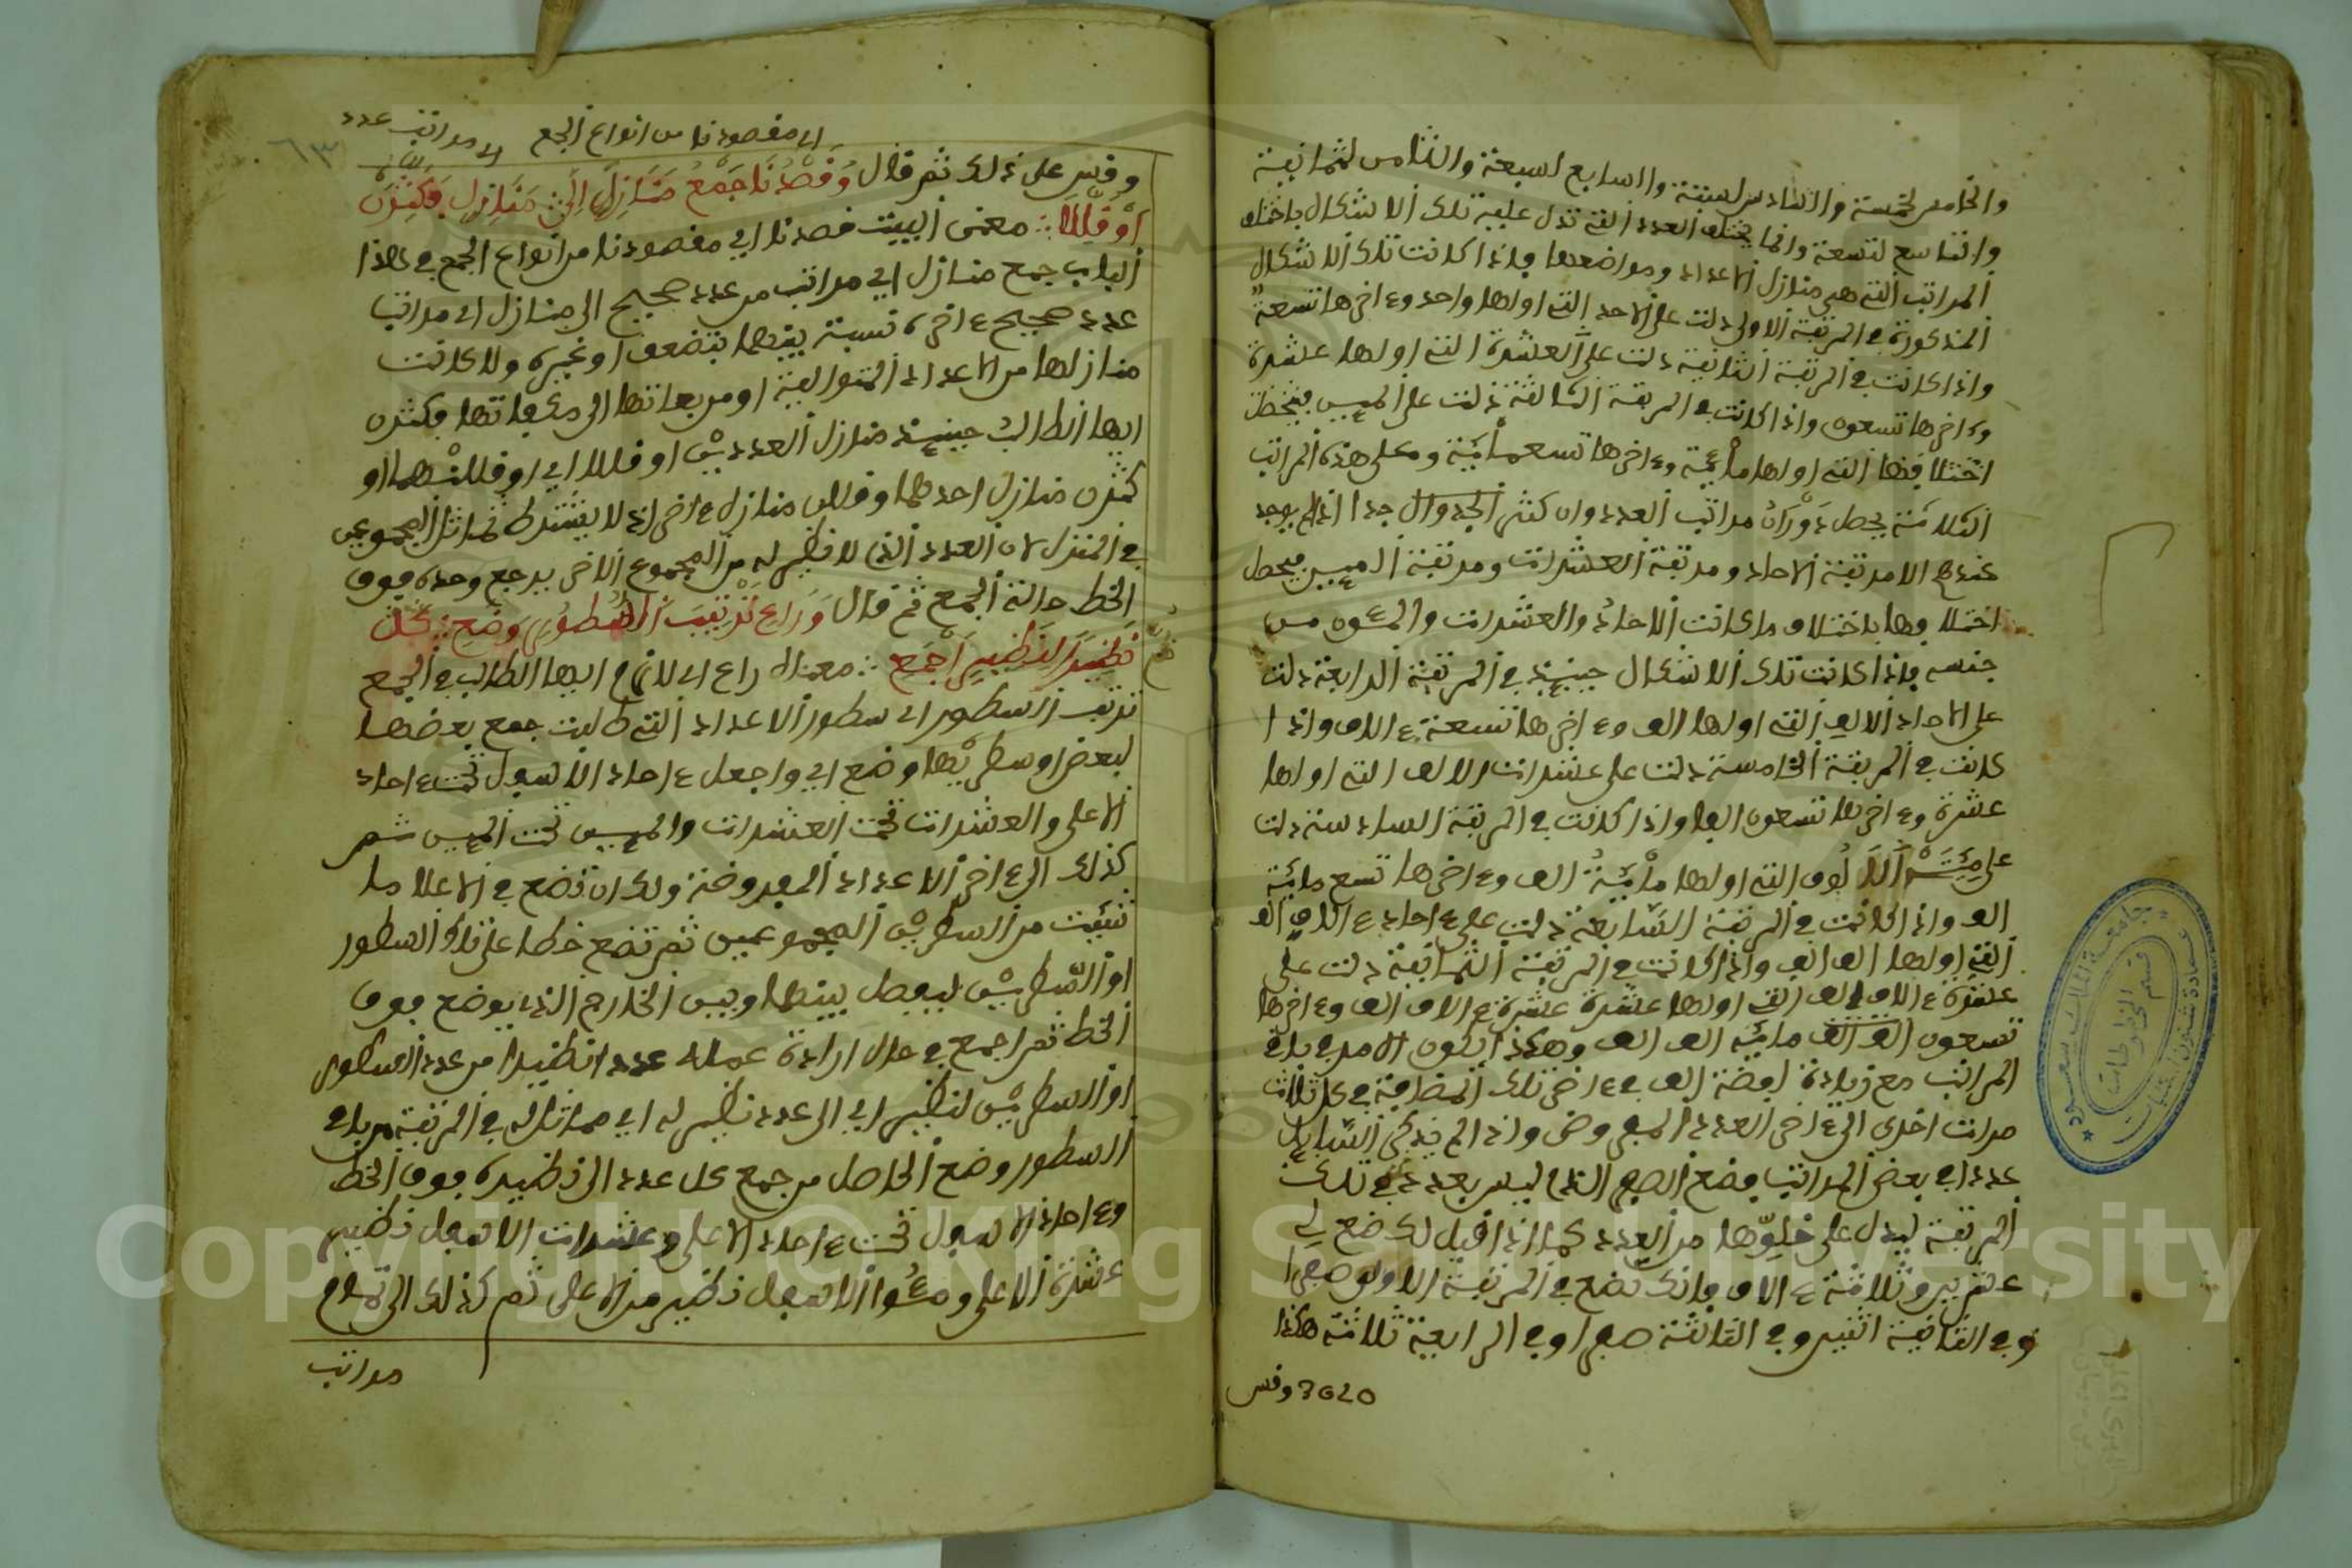 والخامس لخمسة والسادس لستة والسابع لسبعة والثامن لثمانية
والتاسع لتسعة وانما يختلف العدد الذي تدل عليه تلك الاشكال باختلاف
المراتب التي هي منازل الاعداد ومواضعها فاذا كانت تلك الاشكال
المذكورة في المرتبة الاولى دلت على الاحاد التي اولها واحد وءاخرها تسعة
واذا كانت في المرتبة الثانية دلت على العشرة التي اولها عشرة
وءاخرها تسعون واذا كانت في المرتبة الثالثة دلت على الميين
التي اولها مائة وءاخرها تسعمائة وعلى هذه المراتب
الثلاثة يحصل دوران مراتب العدد وان كثر الجدول جدا اذ لم يوجد
عندهم الا مرتبة الاحاد ومرتبة العشرات ومرتبة الميين فيحصل
اختلافها باختلاف ما كانت الاحاد والعشرات والمئون من
جنسه فاذا كانت تلك الاشكال حينئذ في المرتبة الرابعة دلت
على الاحاد الالف التي اولها الف وءاخرها تسعة ءالاف واذا
كانت في المرتبة الخامسة دلت على عشرات الالف التي اولها
عشرة وءاخرها تسعون الفا واذا كانت في المرتبة السادسة دلت
على الالوف التي اولها مائة الف وءاخرها تسع مائة
الف واذا كانت في المرتبة السابعة دلت على ءاحاد ءالاف الف
التي اولها الف الف واذا كانت في المرتبة الثمانية دلت على
عشرة ءالاف الف التي اولها عشرة عشرة ءالاف الف وءاخرها
تسعون الف الف مائة الف الف وهكذا يكون الامر في باقي
المراتب مع زيادة لفظة الف في ءاخر تلك المضافة في كل ثلاث
مرات اخرى الى ءاخر العدد المفروض واذا لم يذكر السائل
عددا في بعض المراتب فضع الصفر الذي ليس بعدد في تلك
المرتبة ليدل على خلوها من العدد كما اذا قيل لك ضع لي
عشرين وثلاثة ءالاف فانك تضع في المرتبة الاولى صفرا
وفي الثانية اثنين وفي الثالثة صفرا وفي الرابعة ثلاثة هكذا
3020 وقس
اي مقصودنا من انواع الجمع اي مراتب عدد
٦٣
وقس على ذلك ثم قال وقصدنا جمع منازل الى منازل فكثرن
او قللا : معنى البيت قصدنا اي مقصودنا من انواع الجمع في هذا
الباب جمع منازل اي مراتب من عدد صحيح الى منازل اي مراتب
عدد صحيح ءاخر نسبة بينهما بتضعف او غيره ولا كانت
منازلها من الاعداد المتوالية او مربعاتها الى مكعباتها فكثرن
ايها الطالب حينئذ منازل العددين او قللا اي او قللنهما او
كثرن منازل احدهما وقللن منازل ءاخر اذ لا يشترط تماثل المجموعين
في المنزل لان العدد الذي لا نظير له من المجموع الاخر يرجع وحده فوق
الخط حالة الجمع ثم قال وراع ترتيب السطور وضع : كل
نظير لنظير اجمع : معناه راع اي لازم ايها الطالب في الجمع
ترتيب السطور اي سطور الاعداد التي طلبت جمع بعضها
لبعض او سطريها وضع اي واجعل ءاحاد الاسفل تحت ءاحاد
الاعلى والعشرات تحت العشرات والميين تحت الميين ثم
كذلك الى ءاخر الاعداد المفروضة ولك ان تضع في الاعلا ما
شئت من السطرين المجموعين ثم تضع خطا على تلك السطور
او السطرين ليفصل بينها وبين الخارج الذي يوضع فوق
الخط ثم اجمع في حال ارادة عمله عددا نظيرا من عدد السطور
او السطرين لنظير اي الى عدد نظير له اي مماثل له في المرتبة من باقي
السطور وضع الحاصل من جمع كل عدد الى نظيره فوق الخط
وءاحاد الاسفل تحت ءاحاد الاعلى وعشرات الاسفل نظير
عشرة الاعلى ومئوا الاسفل نظير من الاعلى ثم كذلك الى تمام
مراتب
جامعة الملك سعود
عمادة شؤون المكتبات
قسم المخطوطات
Copyright © King Saud University